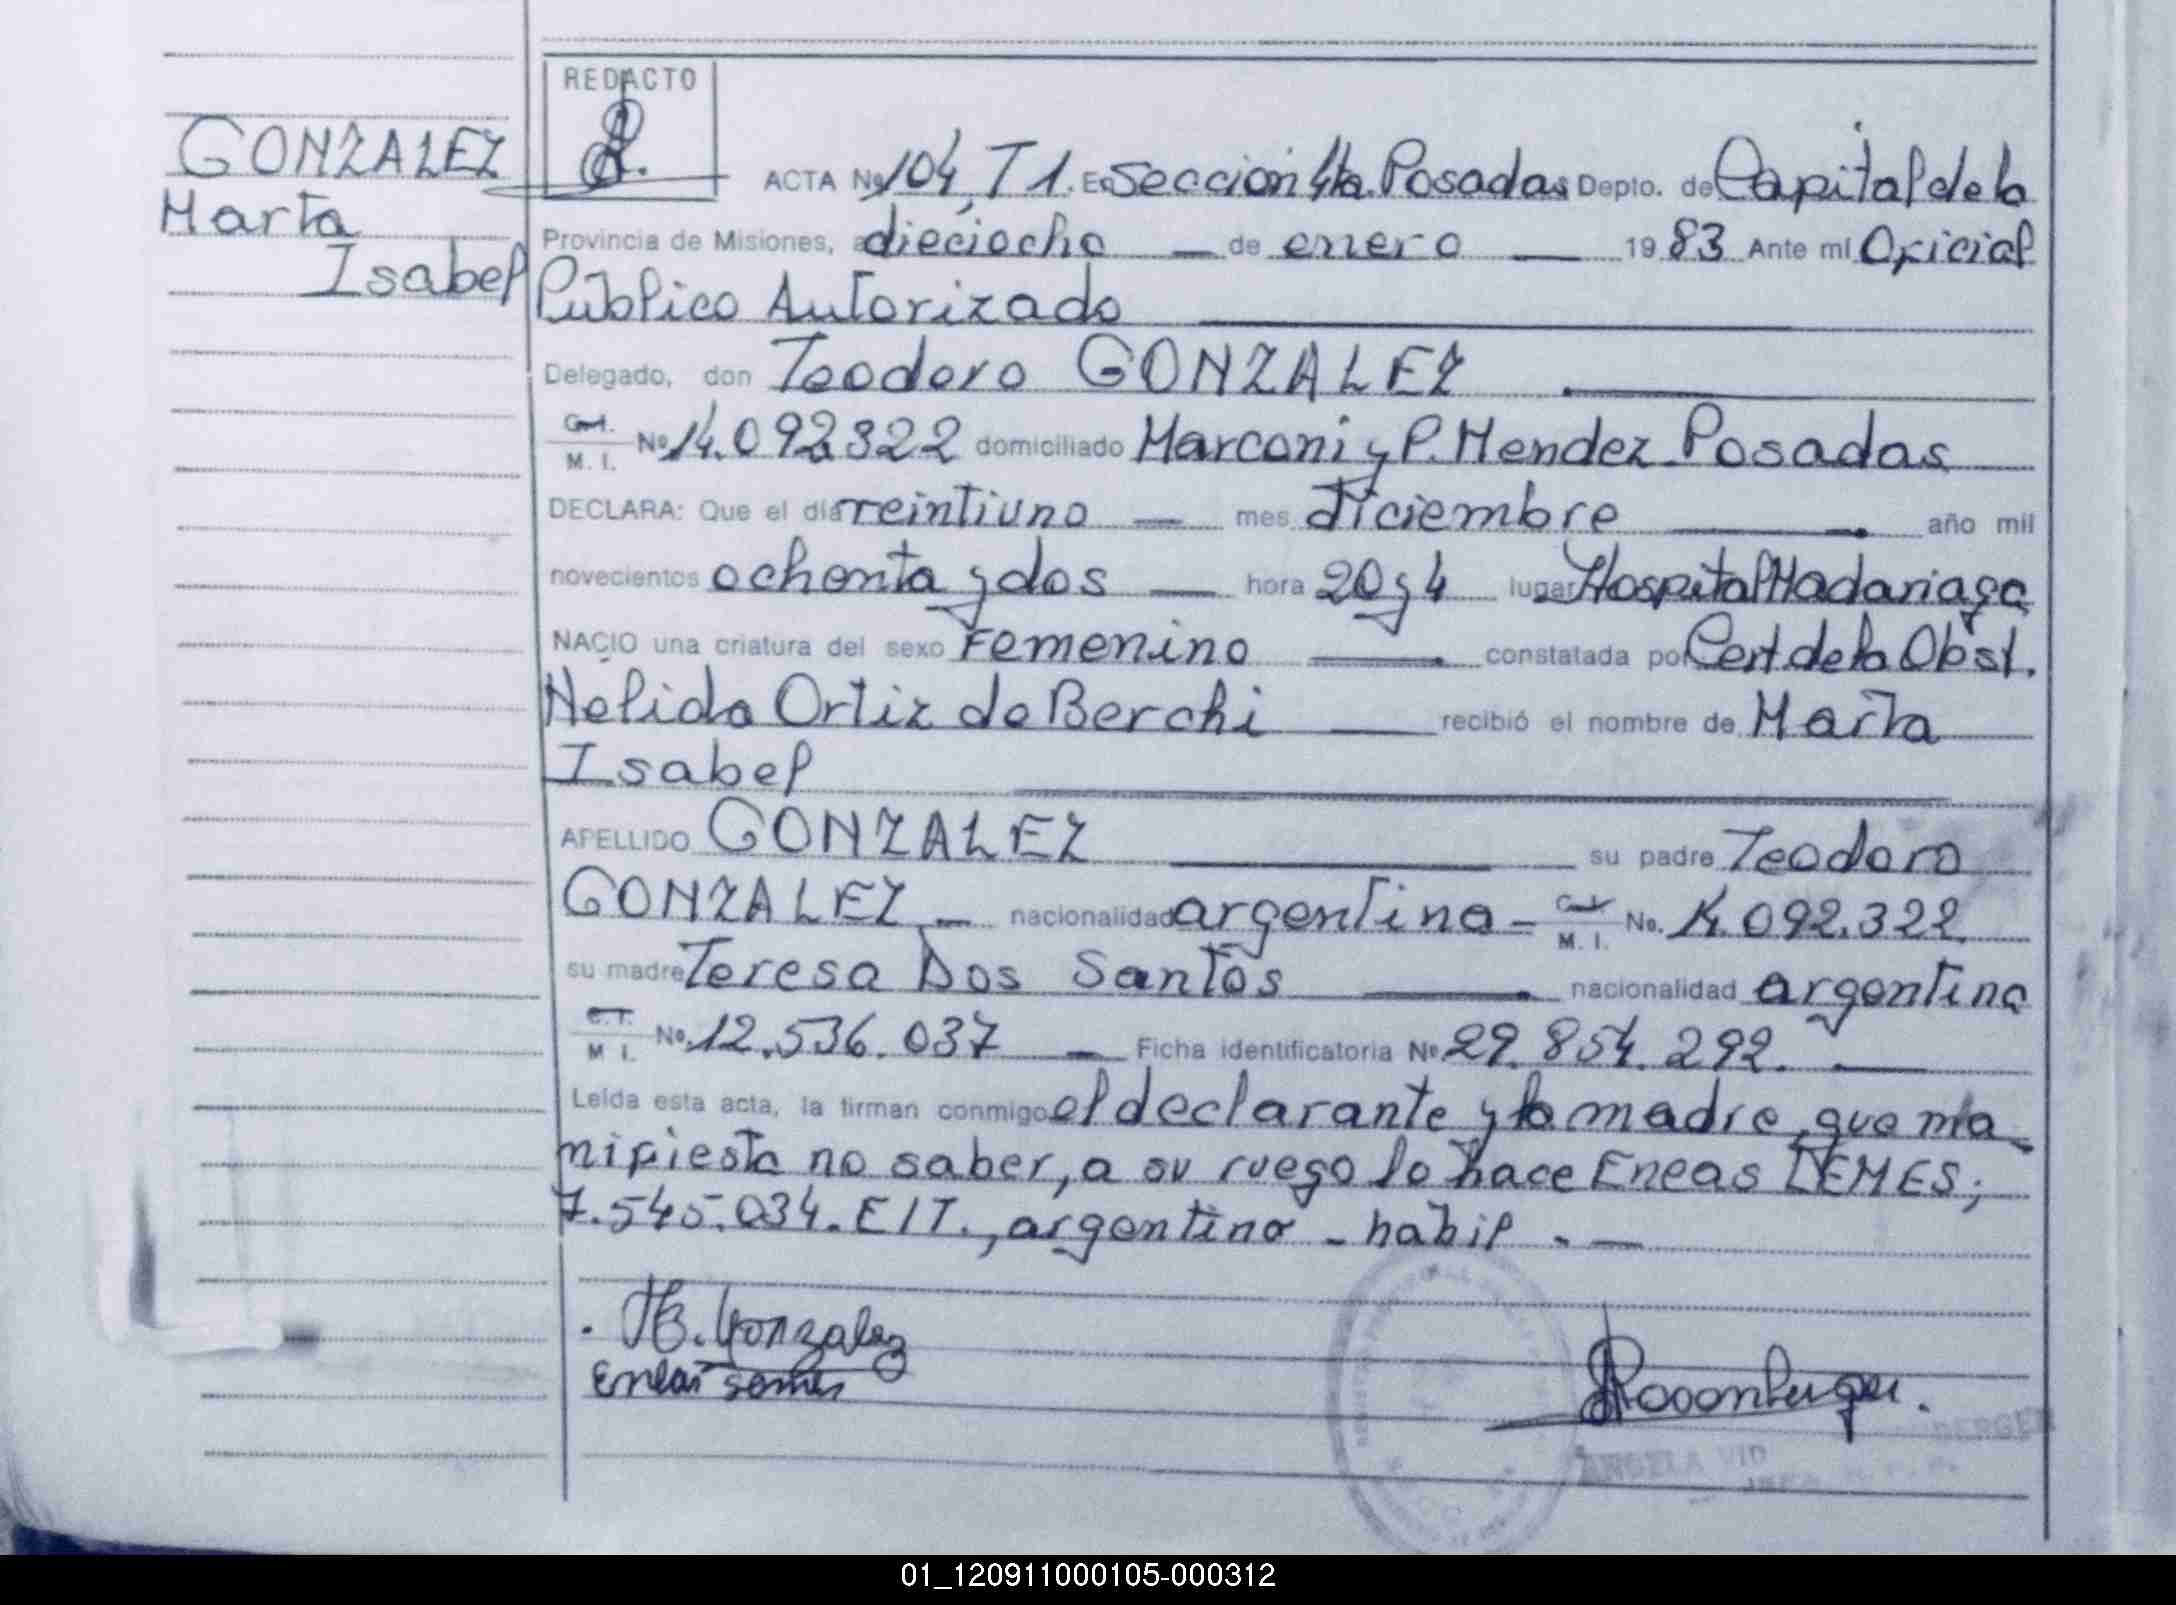 GONZALEZ
Marta
Isabel
REDACTO
ACTA Nº 104, T1. En Sección 4ta. Posadas Depto. de Capital de la
Provincia de Misiones, a dieciocho — de enero — 1983 Ante mí Oficial
Público Autorizado
Delegado, don Teodoro GONZALEZ
C.I.
M. I. Nº 14.092.322 domiciliado Marconi y P. Mendez Posadas
DECLARA: Que el día veintiuno — mes diciembre — año mil
novecientos ochenta y dos — hora 20 y 4 lugar Hospital Madariaga
NACIO una criatura del sexo Femenino — constatada por Cert. de la Obst.
Nelida Ortiz de Berchi — recibió el nombre de Marta
Isabel
APELLIDO GONZALEZ — su padre Teodoro
GONZALEZ — nacionalidad argentina — M. I. No. 14.092.322
su madre Teresa Dos Santos — nacionalidad argentina
C.I.
M. I. No. 12.536.037 — Ficha identificatoria Nº 29.854.292. —
Leída esta acta, la firman conmigo el declarante y la madre, que ma-
nifiesta no saber, a su ruego lo hace Eneas LEMES;
7.545.034. EIT., argentino - habil . —
González
Eneas
ANGELA
BERGER
01_120911000105-000312